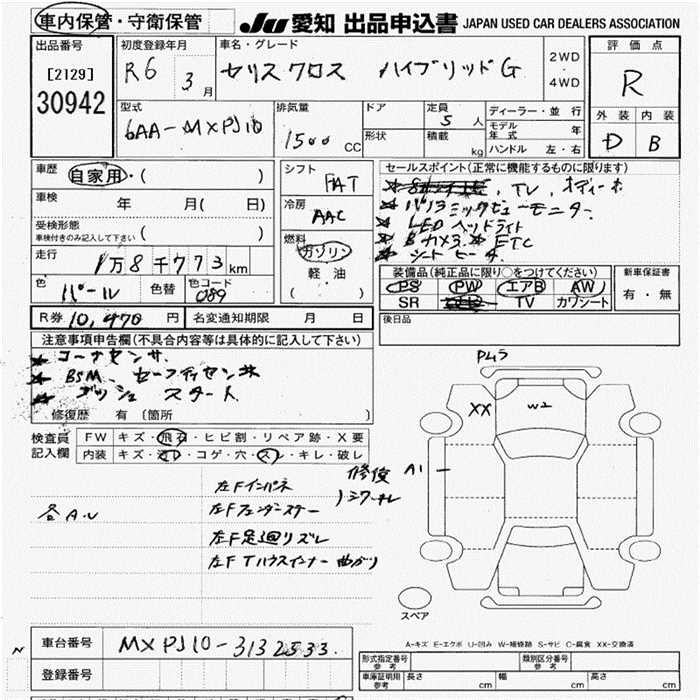 車内保管・守衛保管 JU 愛知 出品申込書 JAPAN USED CAR DEALERS ASSOCIATION
出品番号 初度登録年月 車名・グレード 2WD・4WD 評価点
[2129] R6 3月 セリスクロス ハイブリッドG R
30942
型式 排気量 ドア 定員 5人 ディーラー・並行 外装 内装
6AA-MXPJ10 1500 CC 形状 積載 kg モデル年式 年 D B
ハンドル 左・右
車歴 自家用・( ) シフト FAT セールスポイント(正常に機能するものに限ります)
車検 年 月( 日) 冷房 AAC TV、オーディオ
パノラミックビューモニター
受検形態 車検付きのみ記入して下さい ( ) 燃料 LEDヘッドライト
走行 1万8千773km ガソリン・軽油 Bカメラ ETC
シートヒーター
色 パール 色替 色コード 089 ( ) 装備品(純正品に限り○をつけてください) 新車保証書
PS PW エアB AW 有・無
SR TV カワシート
R券 10,470円 名変通知期限 月 日 後日品
注意事項申告欄(不具合内容等は具体的に記入して下さい)
コーナーセンサ
BSM セーフティセンサ
プッシュスタート
修復歴 有〔箇所 〕
検査員記入欄 FW キズ・飛石・ヒビ割・リペア跡・X要
内装 キズ・汚レ・コゲ・穴・スレ・キレ・破レ
XX W2
A1
各A.U 左Fインパネ 修復
左Fフェンダーステー
左F足廻リズレ
左FTハウスインナー 曲がり
スペア
A-キズ E-エクボ U-凹み W-補修跡 S-サビ C-腐食 XX-交換済
車台番号 MXPJ10-3132533.
登録番号
形式指定番号 参考 類別区分番号 参考
車庫証明用 参考 長さ cm 幅 cm 高さ cm